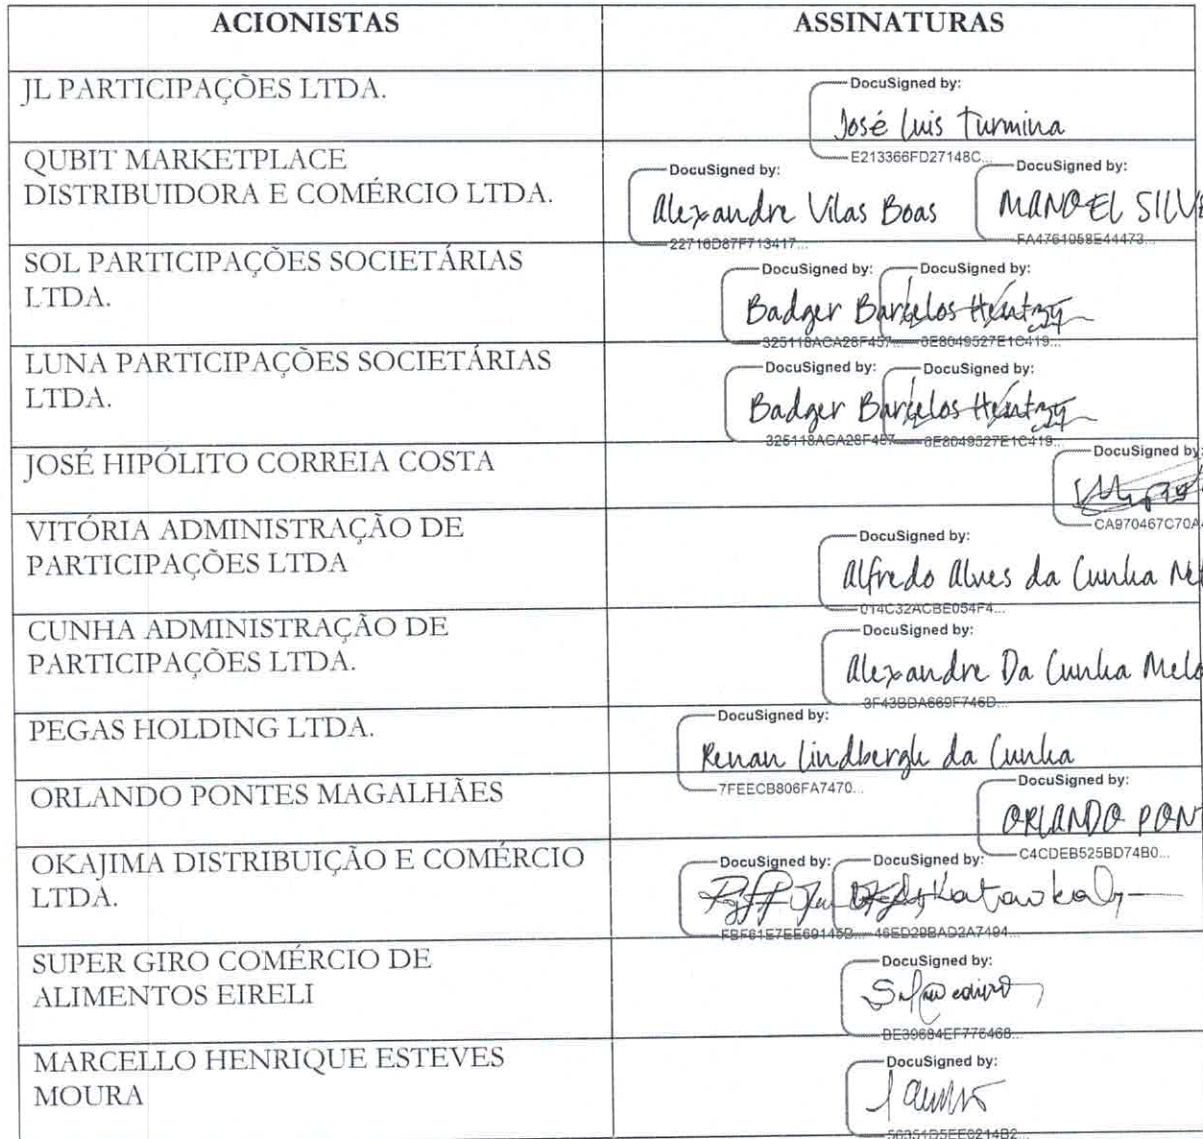 ACIONISTAS
ASSINATURAS
JL PARTICIPAÇÕES LTDA.
DocuSigned by:
José Luis Turmina
E213366FD27148C...
QUBIT MARKETPLACE
DISTRIBUIDORA E COMÉRCIO LTDA.
DocuSigned by:
Alexandre Vilas Boas
22716D87F713417...
DocuSigned by:
MANOEL SILVE
FA4761058E44473...
SOL PARTICIPAÇÕES SOCIETÁRIAS
LTDA.
DocuSigned by:
Badger Barcelos
325118ACA28F457...
DocuSigned by:
8E8049527E1C419...
LUNA PARTICIPAÇÕES SOCIETÁRIAS
LTDA.
DocuSigned by:
Badger Barcelos
325118ACA28F457...
DocuSigned by:
8E8049527E1C419...
JOSÉ HIPÓLITO CORREIA COSTA
DocuSigned by:
CA970467C70A
VITÓRIA ADMINISTRAÇÃO DE
PARTICIPAÇÕES LTDA
DocuSigned by:
Alfredo Alves da Cunha Ne
014C32ACBE054F4...
CUNHA ADMINISTRAÇÃO DE
PARTICIPAÇÕES LTDA.
DocuSigned by:
Alexandre Da Cunha Melo
3F43BDA669F746D...
PEGAS HOLDING LTDA.
DocuSigned by:
Renan Lindbergh da Cunha
7FEECB806FA7470...
ORLANDO PONTES MAGALHÃES
DocuSigned by:
ORLANDO PONT
C4CDEB525BD74B0...
OKAJIMA DISTRIBUIÇÃO E COMÉRCIO
LTDA.
DocuSigned by:
FBF61E7EE69145B...
DocuSigned by:
46ED29BAD2A7494...
SUPER GIRO COMÉRCIO DE
ALIMENTOS EIRELI
DocuSigned by:
BE39684EF776468...
MARCELLO HENRIQUE ESTEVES
MOURA
DocuSigned by:
56351D5EE0214B2...